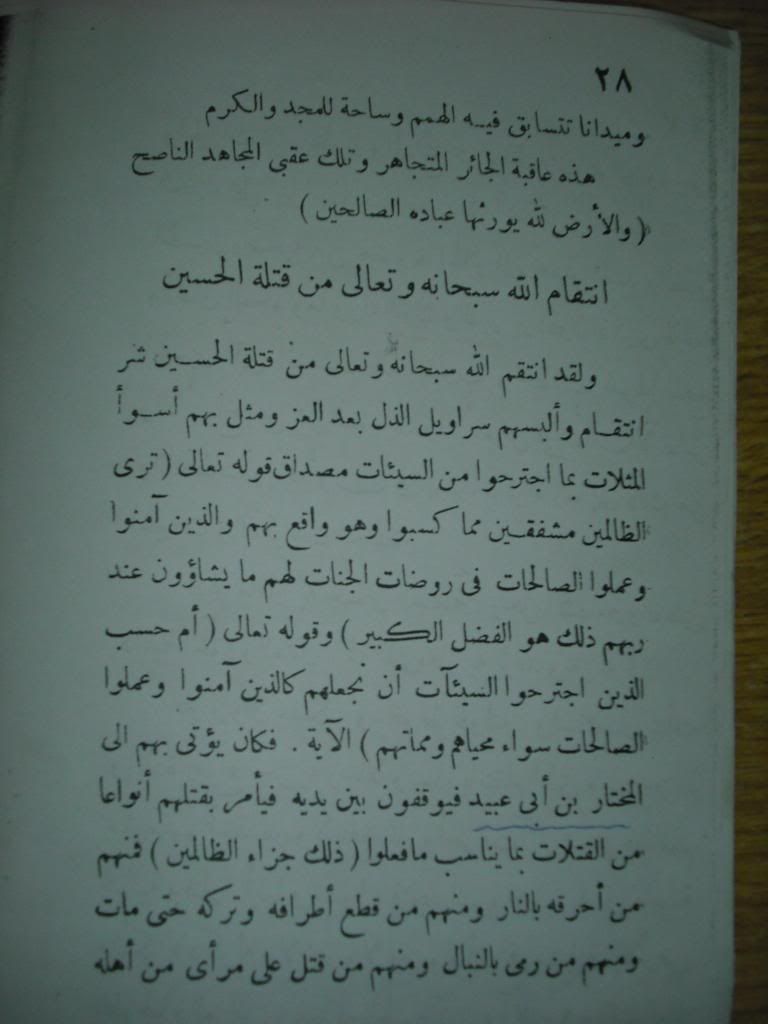 ٢٨
وميدانا تتسابق فيه الهمم وساحة للمجد والكرم
هذه عاقبة الجائر المتجاهر وتلك عقبى المجاهد الناصح
( والأرض لله يورثها عباده الصالحين )
انتقام الله سبحانه وتعالى من قتلة الحسين
ولقد انتقم الله سبحانه وتعالى من قتلة الحسين شر
انتقام وألبسهم سراويل الذل بعد العز ومثل بهم أسوأ
المثلات بما اجترحوا من السيئات مصداق قوله تعالى ( ترى
الظالمين مشفقين مما كسبوا وهو واقع بهم والذين آمنوا
وعملوا الصالحات فى روضات الجنات لهم ما يشاؤون عند
ربهم ذلك هو الفضل الكبير ) وقوله تعالى ( أم حسب
الذين اجترحوا السيئآت أن نجعلهم كالذين آمنوا وعملوا
الصالحات سواء محياهم ومماتهم ) الآية . فكان يؤتى بهم الى
المختار بن أبى عبيد فيوقفون بين يديه فيأمر بقتلهم أنواعا
من القتلات بما يناسب مافعلوا ( ذلك جزاء الظالمين ) فمنهم
من أحرقه بالنار ومنهم من قطع أطرافه وتركه حتى مات
ومنهم من رمى بالنبال ومنهم من قتل على مرأى من أهله